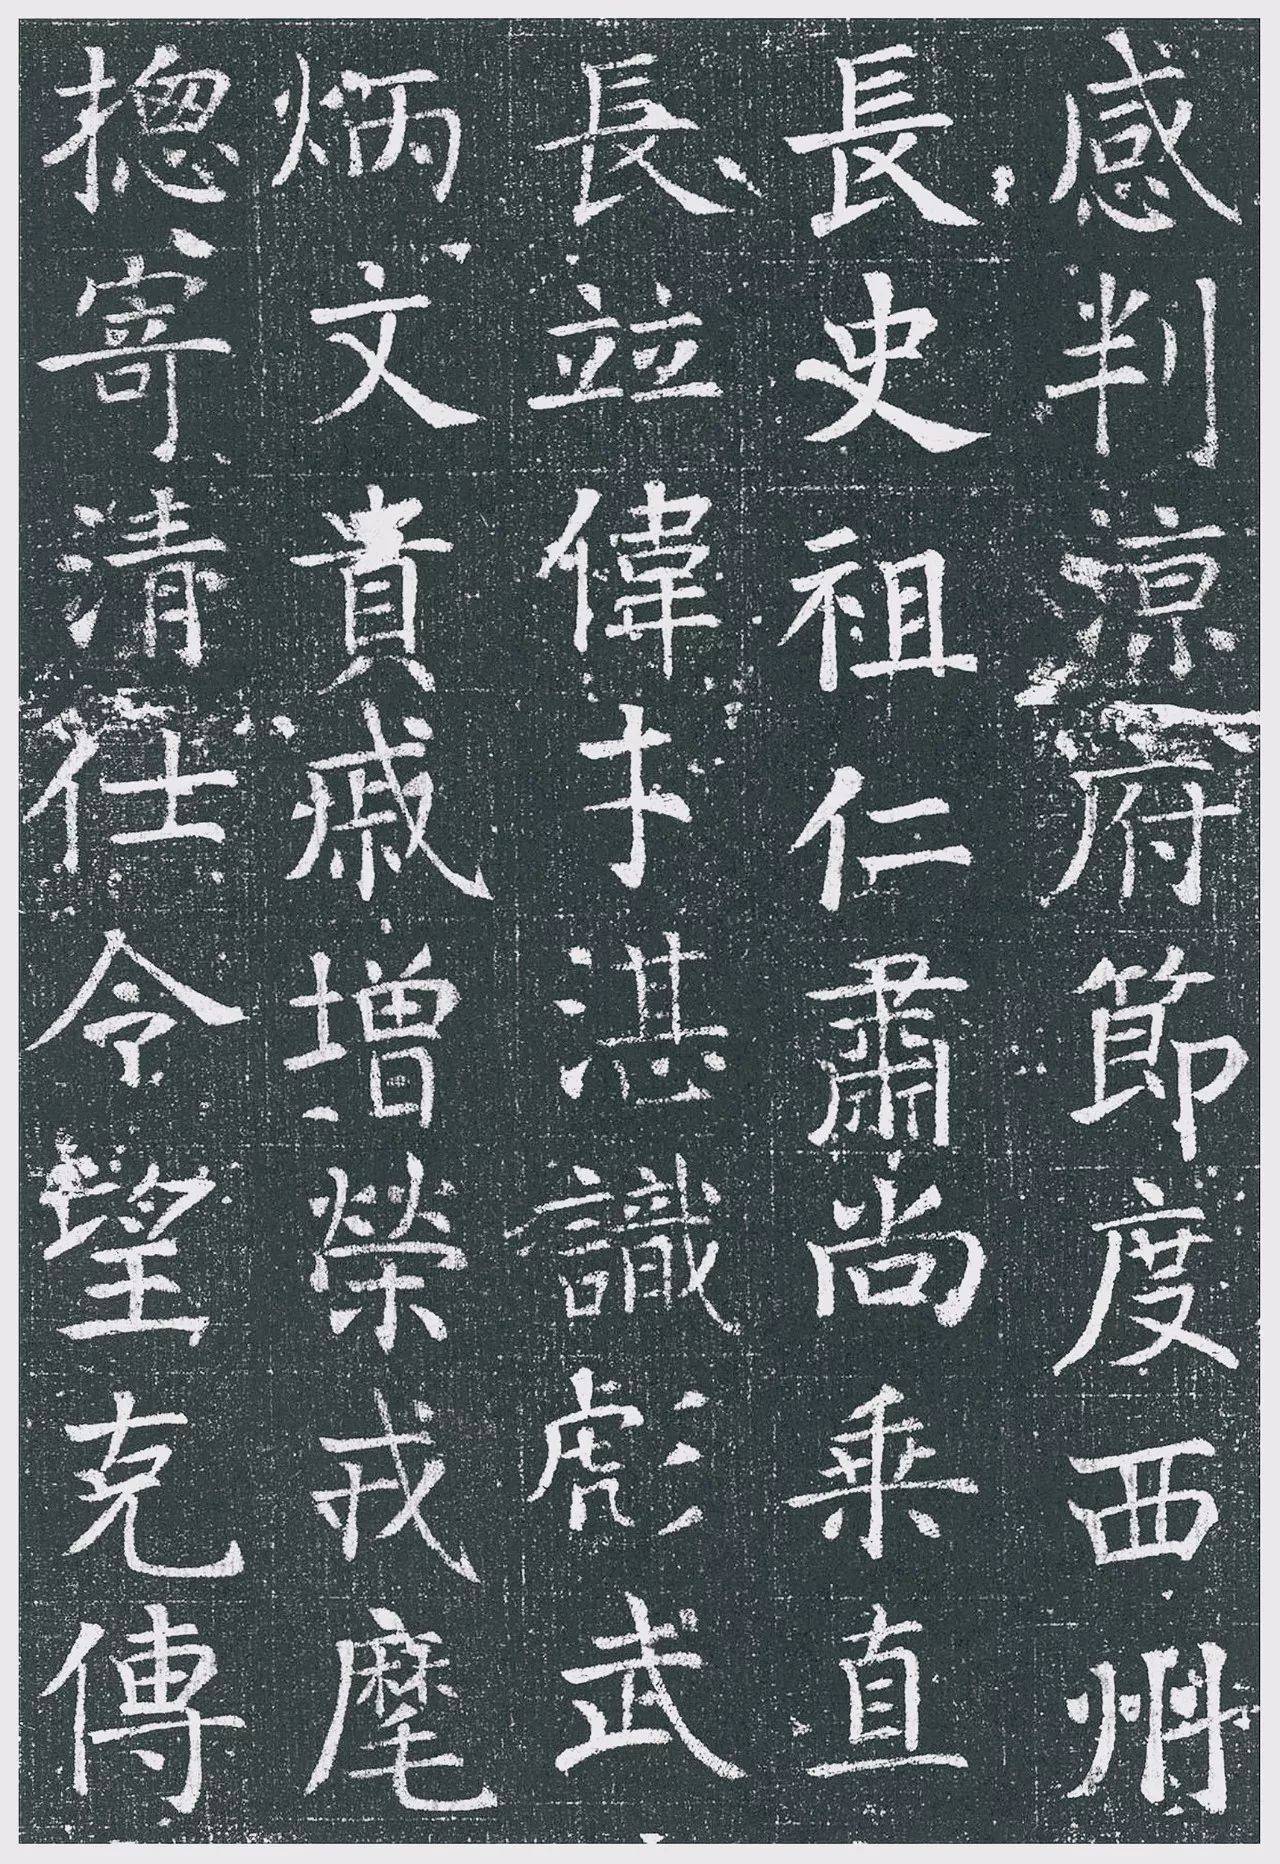 感判涼府節度西州
長史祖仁肅尚乗直
長竝偉才湛識彪武
炳文貴戚增榮戎麾
揔寄清仕令望克傳